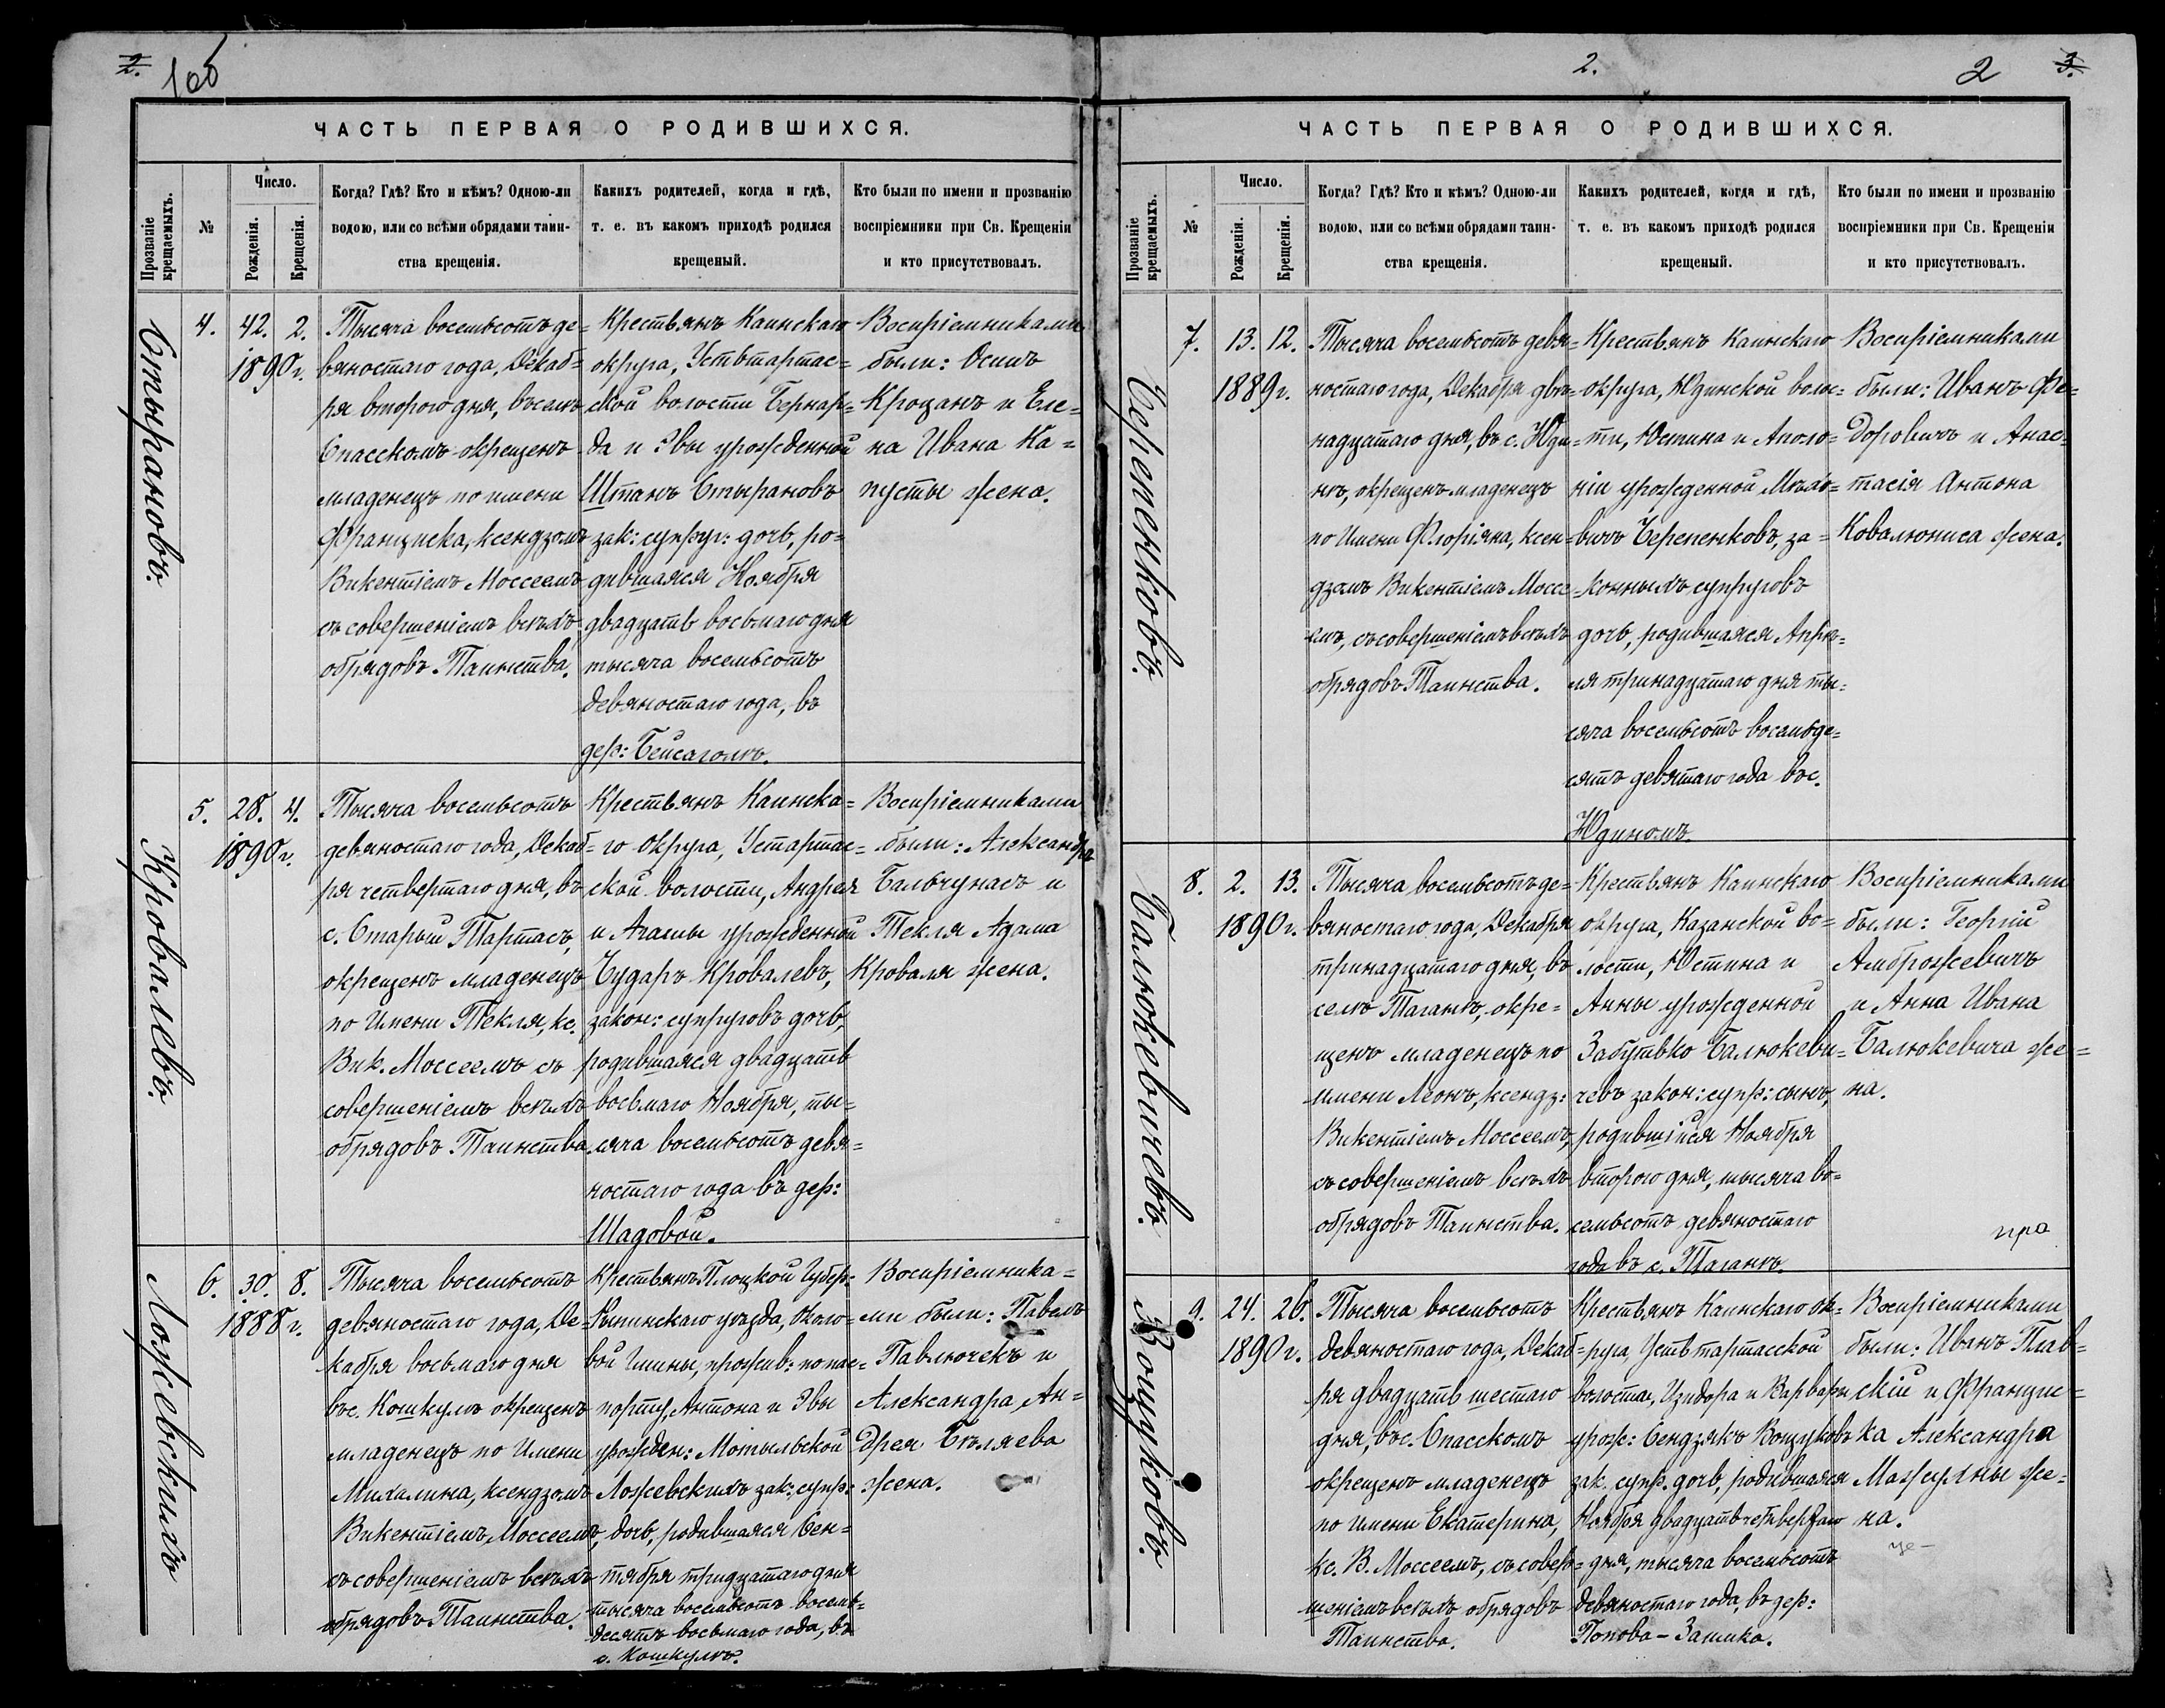 2.
1об
ЧАСТЬ ПЕРВАЯ О РОДИВШИХСЯ.
Прозваніе крещаемыхъ.
№
Число.
Рожденія.
Крещенія.
Когда? Гдѣ? Кто и кѣмъ? Одною-ли
водою, или со всѣми обрядами таин-
ства крещенія.
Какихъ родителей, когда и гдѣ,
т. е. въ какомъ приходѣ родился
крещеный.
Кто были по имени и прозванію
воспріемники при Св. Крещеніи
и кто присутствовалъ.
Стырановъ.
4.
42. 2.
1890 г.
Тысяча восемьсотъ де-
вяностаго года, Декаб-
ря второго дня, въ селѣ
Спасскомъ окрещенъ
младенецъ по имени
Франциска, ксендзомъ
Викентіемъ Моссеемъ
съ совершеніемъ всѣхъ
обрядовъ Таинства.
Крестьянъ Каинскаго
округа, Устьтартас-
ской волости Бернар-
да и Эвы урожденной
Штанъ Стырановъ
зак: супруг: дочь, ро-
дившаяся Ноября
двадцать восьмаго дня
тысяча восемьсотъ
девяностаго года, въ
дер: Бейсаголѣ.
Воспріемниками
были: Осипъ
Кроцанъ и Еле-
на Ивана Ка=
пусты жена.
Кровалевъ.
5.
28. 4.
1890 г.
Тысяча восемьсотъ
девяностаго года, Декаб-
ря четвертаго дня, въ
с. Старый Тартасъ,
окрещенъ младенецъ
по Имени Текля, кс.
Вик. Моссеемъ съ
совершеніемъ всѣхъ
обрядовъ Таинства.
Крестьянъ Каинска=
го округа, Устартас=
ской волости, Андрея
и Агаты урожденной
Чударъ Кровалевъ,
закон: супруговъ дочь,
родившаяся двадцать
восьмаго Ноября, ты=
сяча восемьсотъ девя=
ностаго года въ дер:
Шадовой.
Воспріемниками
были: Александра
Бальчунасъ и
Текля Адама
Кроваля жена.
Ложевскихъ
6.
30. 8.
1888 г.
Тысяча восемьсотъ
девяностаго года, Де-
кабря восьмаго дня
въ с. Кошкулѣ окрещенъ
младенецъ по Имени
Михалина, ксендзомъ
Викентіемъ Моссеемъ,
съ совершеніемъ всѣхъ
обрядовъ Таинства.
Крестьянъ Плоцкой Губер:
Рыпинскаго уѣзда, Около=
вой Гмины, прожив: по пас=
порту, Антона и Эвы
урожден: Мотыльской
Ложевскихъ зак: супр:
дочь, родившаяся Сен=
тября тридцатаго дня
тысяча восемьсотъ восемь=
десятъ восьмаго года, въ
с. Кошкулѣ.
Воспріемника=
ми были: Павелъ
Павлючекъ и
Александра Ан=
дрея Бѣляева
жена.
2.
2
3.
ЧАСТЬ ПЕРВАЯ О РОДИВШИХСЯ.
Прозваніе крещаемыхъ.
№
Число.
Рожденія.
Крещенія.
Когда? Гдѣ? Кто и кѣмъ? Одною-ли
водою, или со всѣми обрядами таин-
ства крещенія.
Какихъ родителей, когда и гдѣ,
т. е. въ какомъ приходѣ родился
крещеный.
Кто были по имени и прозванію
воспріемники при Св. Крещеніи
и кто присутствовалъ.
Черепенковъ.
7.
13. 12.
1889 г.
Тысяча восемьсотъ девя=
ностаго года, Декабря двѣ-
надцатаго дня, въ с. Юди-
нѣ, окрещенъ младенецъ
по Имени Флоріяна, ксен-
дзомъ Викентіемъ Моссе-
емъ, съ совершеніемъ всѣхъ
обрядовъ Таинства.
Крестьянъ Каинскаго
округа, Юдинской волос=
ти, Юстина и Аполо=
ніи урожденной
Черепенковъ, за=
конныхъ супруговъ
дочь, родившаяся Апрѣ=
ля тринадцатаго дня ты=
сяча восемьсотъ восемьде=
сятъ девятаго года въ с.
Юдиномъ.
Воспріемниками
были: Иванъ Фе=
доровичъ и Анас=
тасія Антона
Ковалюниса жена.
Балюкевичевъ.
8.
2. 13.
1890 г.
Тысяча восемьсотъ де-
вяностаго года, Декабря
тринадцатаго дня, въ
селѣ Таганѣ, окре=
щенъ младенецъ по
имени Леонъ, ксендз:
Викентіемъ Моссеемъ,
съ совершеніемъ всѣхъ
обрядовъ Таинства.
Крестьянъ Каинскаго
округа, Казанской во=
лости, Юстина и
Анны урожденной
Забутько Балюкеви=
чевъ закон: супр: сынъ,
родившійся Ноября
второго дня, тысяча во=
семьсотъ девяностаго
года въ с. Таганѣ.
Воспріемниками
были: Георгій
Амброжевичъ
и Анна Ивана
Балюкевича же=
на.
пра
Воцуковъ.
9.
24. 26.
1890 г.
Тысяча восемьсотъ
девяностаго года, Декаб=
ря двадцать шестаго
дня, въ с. Спасскомъ
окрещенъ младенецъ
по имени Екатерина,
кс. В. Моссеемъ, съ совер=
шеніемъ всѣхъ обрядовъ
Таинства.
Крестьянъ Каинскаго ок=
руга, Усть тартасской
волости, Изидора и Варвары
урож: Сендзякъ Воцуковъ
зак. супр. дочь, родившаяся
Ноября двадцать четвертаго
дня, тысяча восемьсотъ
девяностаго года, въ дер:
Попова-Заимка.
Воспріемниками
были: Иванъ Плав=
скій и Францис=
ка Александра
Мажулны же=
на.